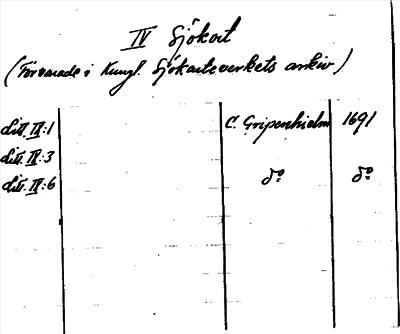 IV Sjökort
(Förvarade i Kungl. Sjökarteverkets arkiv)
Litt. IV:1 C. Gripenhielm 1691
Litt. IV:3
Litt. IV:6 do do